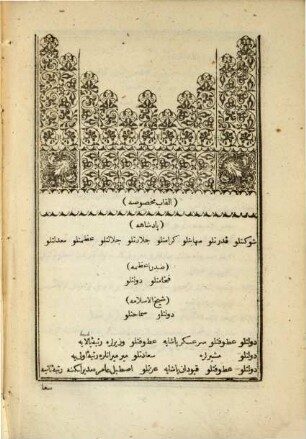 (القاب مخصوصه)
(پادشاهه)
شوكتلو قدرتلو مهابتلو كرامتلو جلادتلو جلالتلو عظمتلو معدلتلو
(صدر اعظمه)
فخامتلو دولتلو
(شيخ الاسلامه)
دولتلو سماحتلو
دولتلو عطوفتلو سرعسكر پاشايه عطوفتلو وزيرزه رتبۀ بالايه
دولتلو مشيرزه سعادتلو ميرميرانلره رتبۀ اولىيه
دولتلو عطوفتلو قپودان پاشايه عزتلو اصطبل عامره مديرلكنه رتبۀ ثانيه
سعا